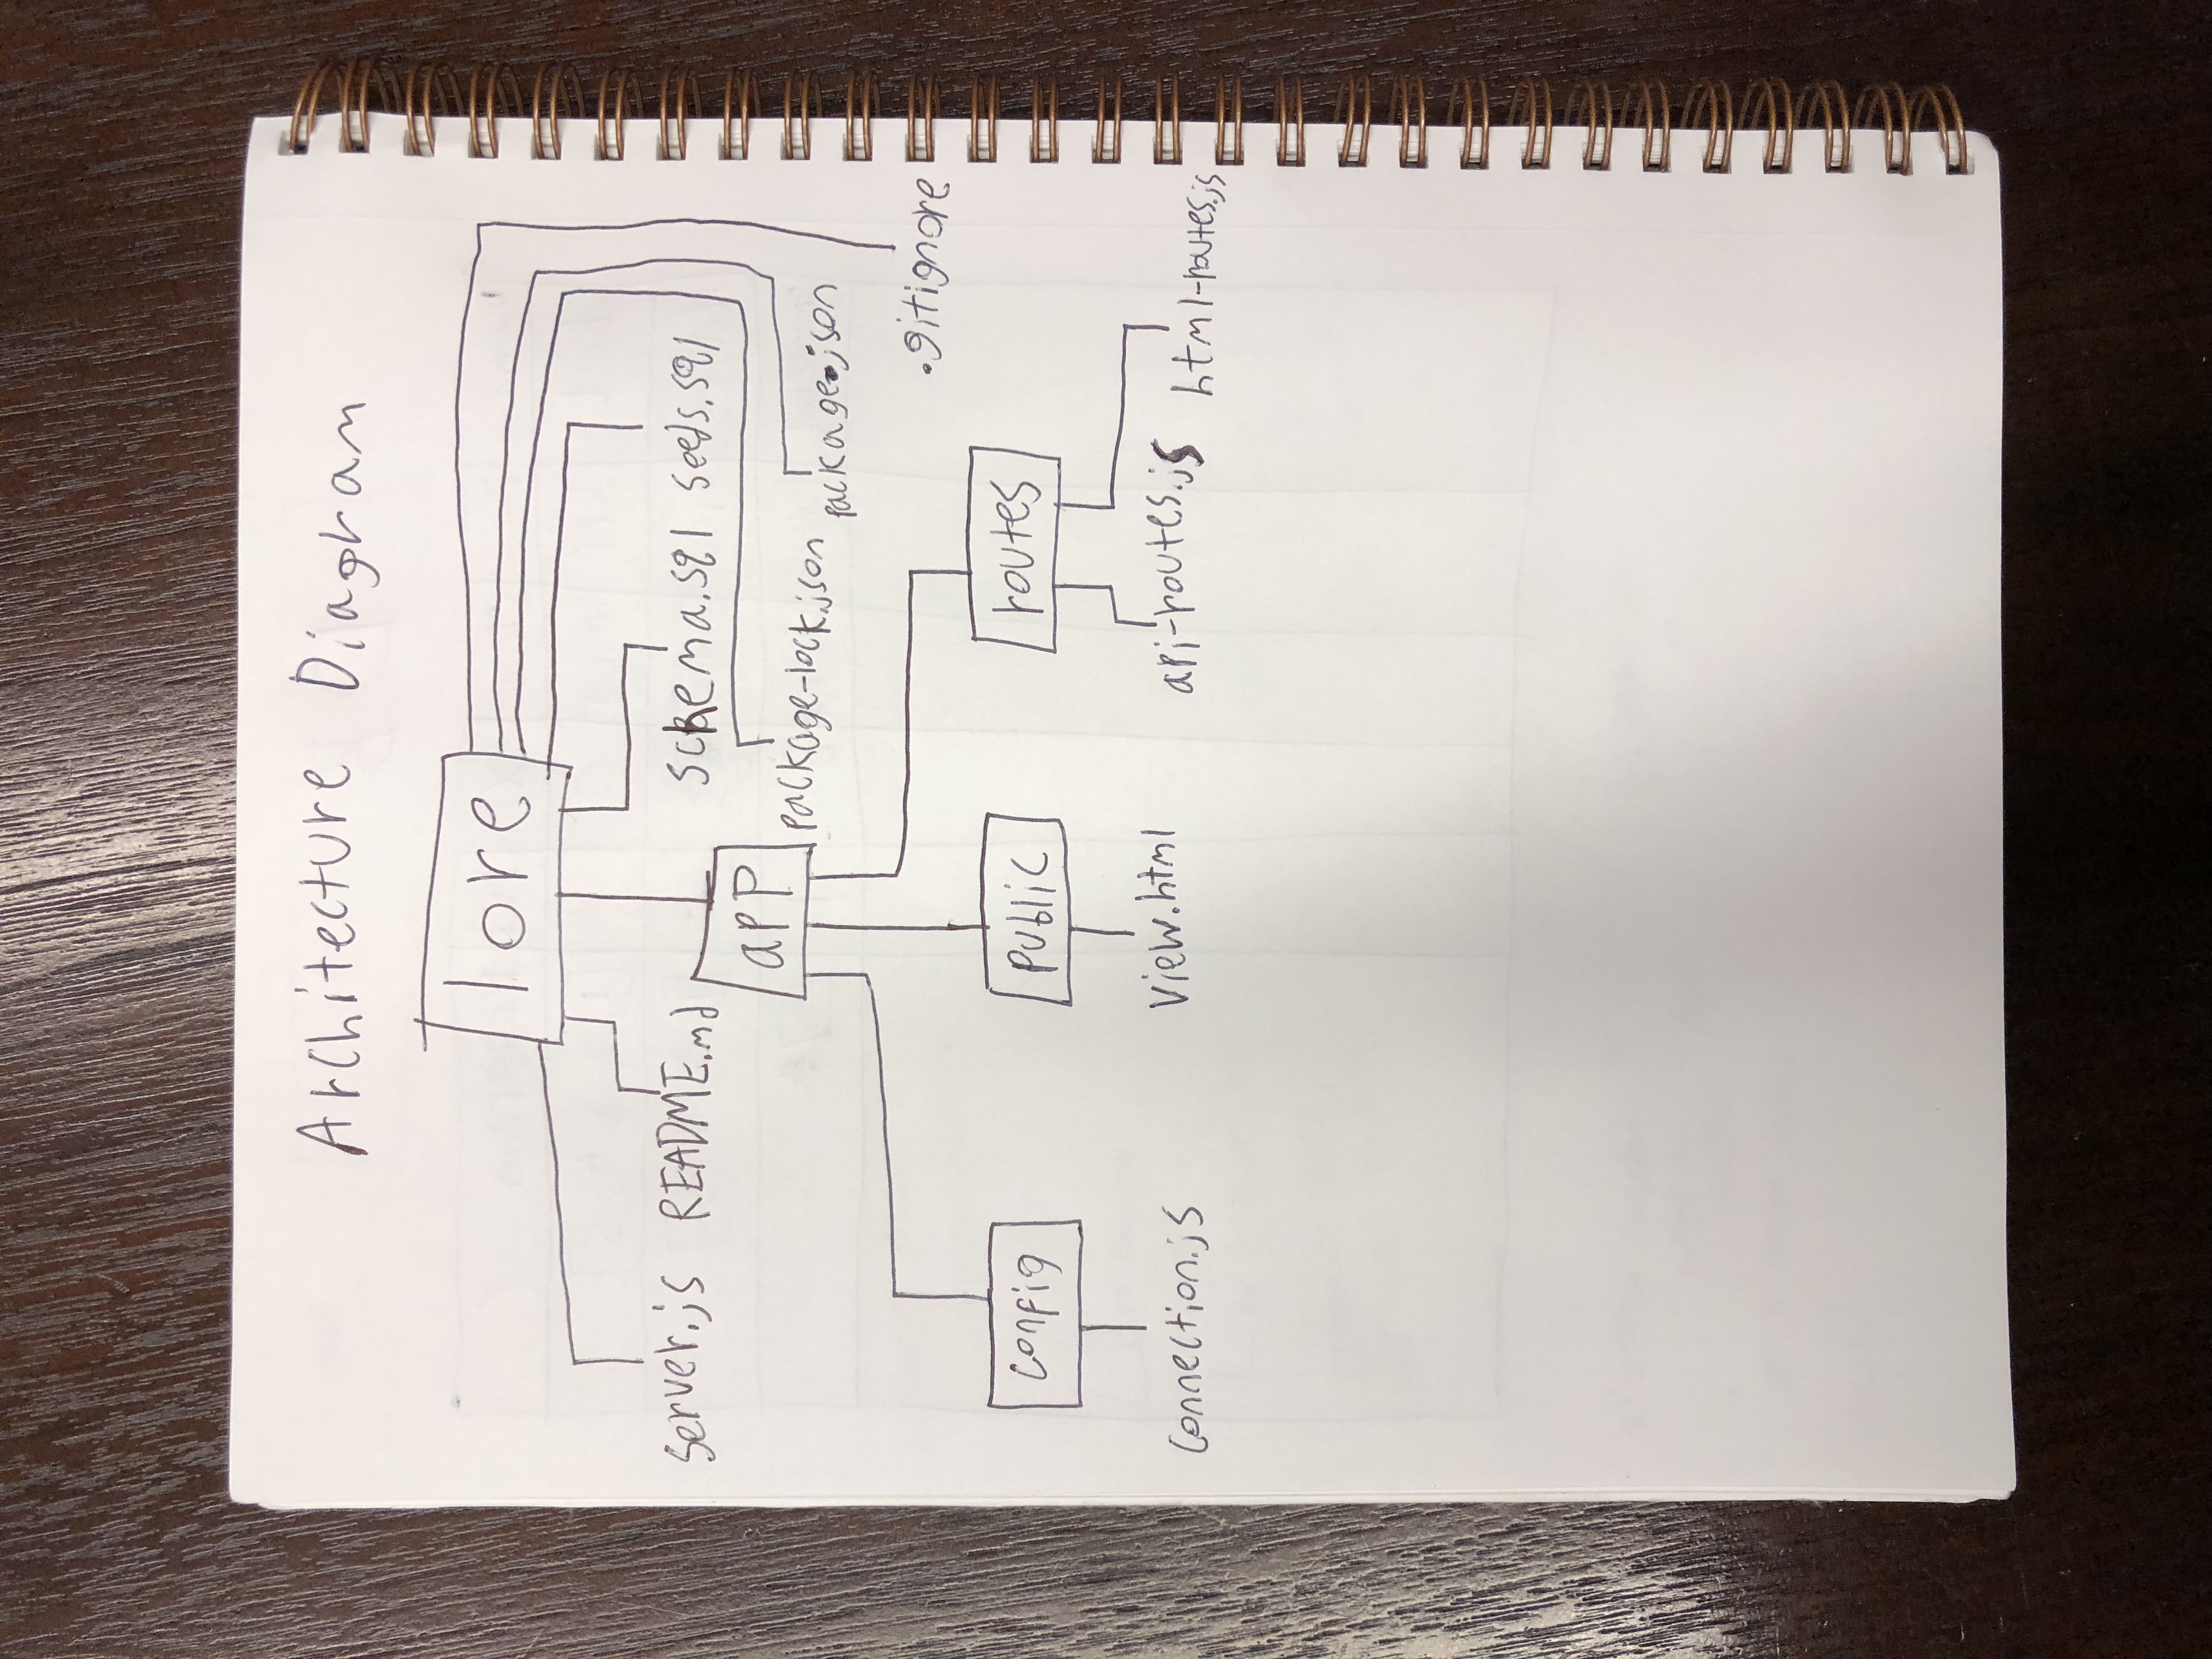 Architecture Diagram
lore
server.js README.md schema.sql seeds.sql
app
package-lock.json package.json
.gitignore
config public routes
connection.js view.html api-routes.js html-routes.js